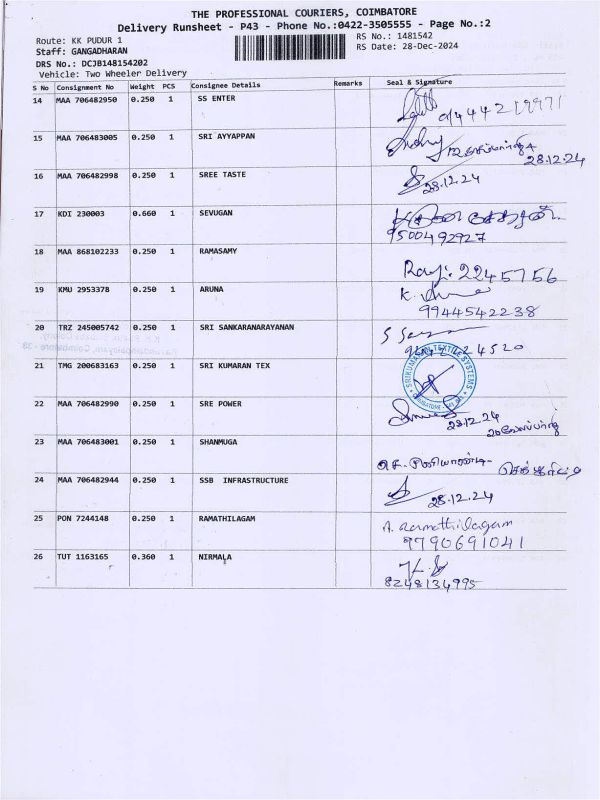 THE PROFESSIONAL COURIERS, COIMBATORE
Delivery Runsheet - P43 - Phone No.:0422-3505555 - Page No.:2
Route: KK PUDUR 1
RS No.: 1481542
Staff: GANGADHARAN
RS Date: 28-Dec-2024
DRS No.: DCJB148154202
Vehicle: Two Wheeler Delivery
S No Consignment No Weight PCS Consignee Details Remarks Seal & Signature
14 MAA 706482950 0.250 1 SS ENTER
15 MAA 706483005 0.250 1 SRI AYYAPPAN
28.12.24
16 MAA 706482998 0.250 1 SREE TASTE
28.12.24
17 KDI 230003 0.660 1 SEVUGAN
9500492927
18 MAA 868102233 0.250 1 RAMASAMY
2245756
19 KMU 2953378 0.250 1 ARUNA
9944542238
20 TRZ 245005742 0.250 1 SRI SANKARANARAYANAN
21 TMG 200683163 0.250 1 SRI KUMARAN TEX
SRIKUMARAN TEXTILE SYSTEMS
22 MAA 706482990 0.250 1 SRE POWER
28.12.24
23 MAA 706483001 0.250 1 SHANMUGA
24 MAA 706482944 0.250 1 SSB INFRASTRUCTURE
28.12.24
25 PON 7244148 0.250 1 RAMATHILAGAM
A. Ramathilagam
9790691041
26 TUT 1163165 0.360 1 NIRMALA
8248134995